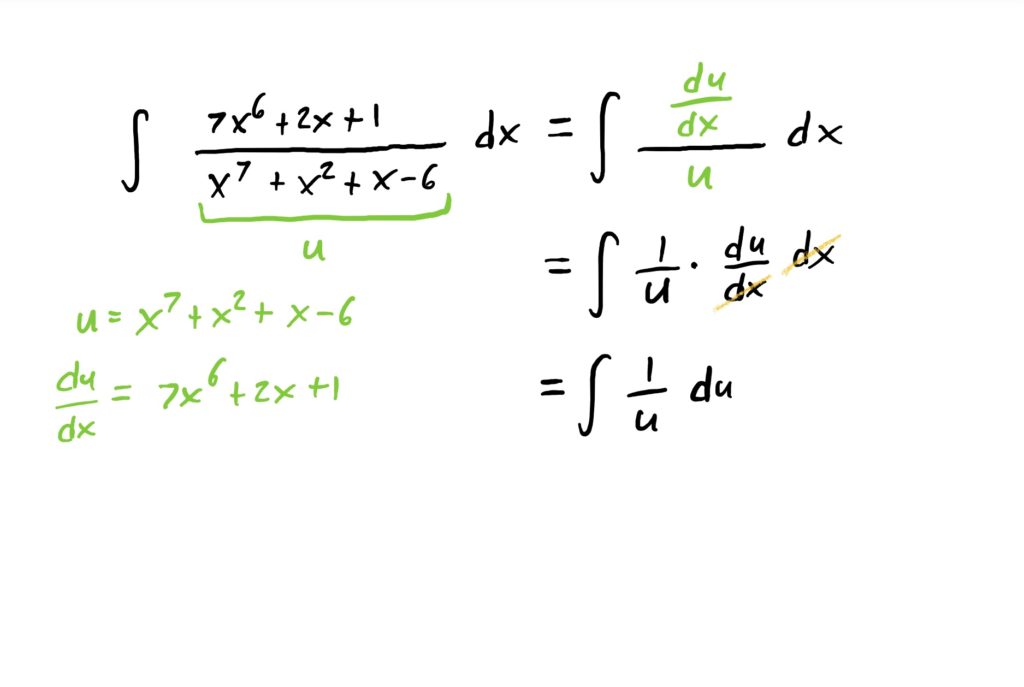 ∫ (7x⁶ + 2x + 1)/(x⁷ + x² + x - 6) dx = ∫ (du/dx)/u dx
u
= ∫ 1/u · du/dx dx
u = x⁷ + x² + x - 6
du/dx = 7x⁶ + 2x + 1
= ∫ 1/u du